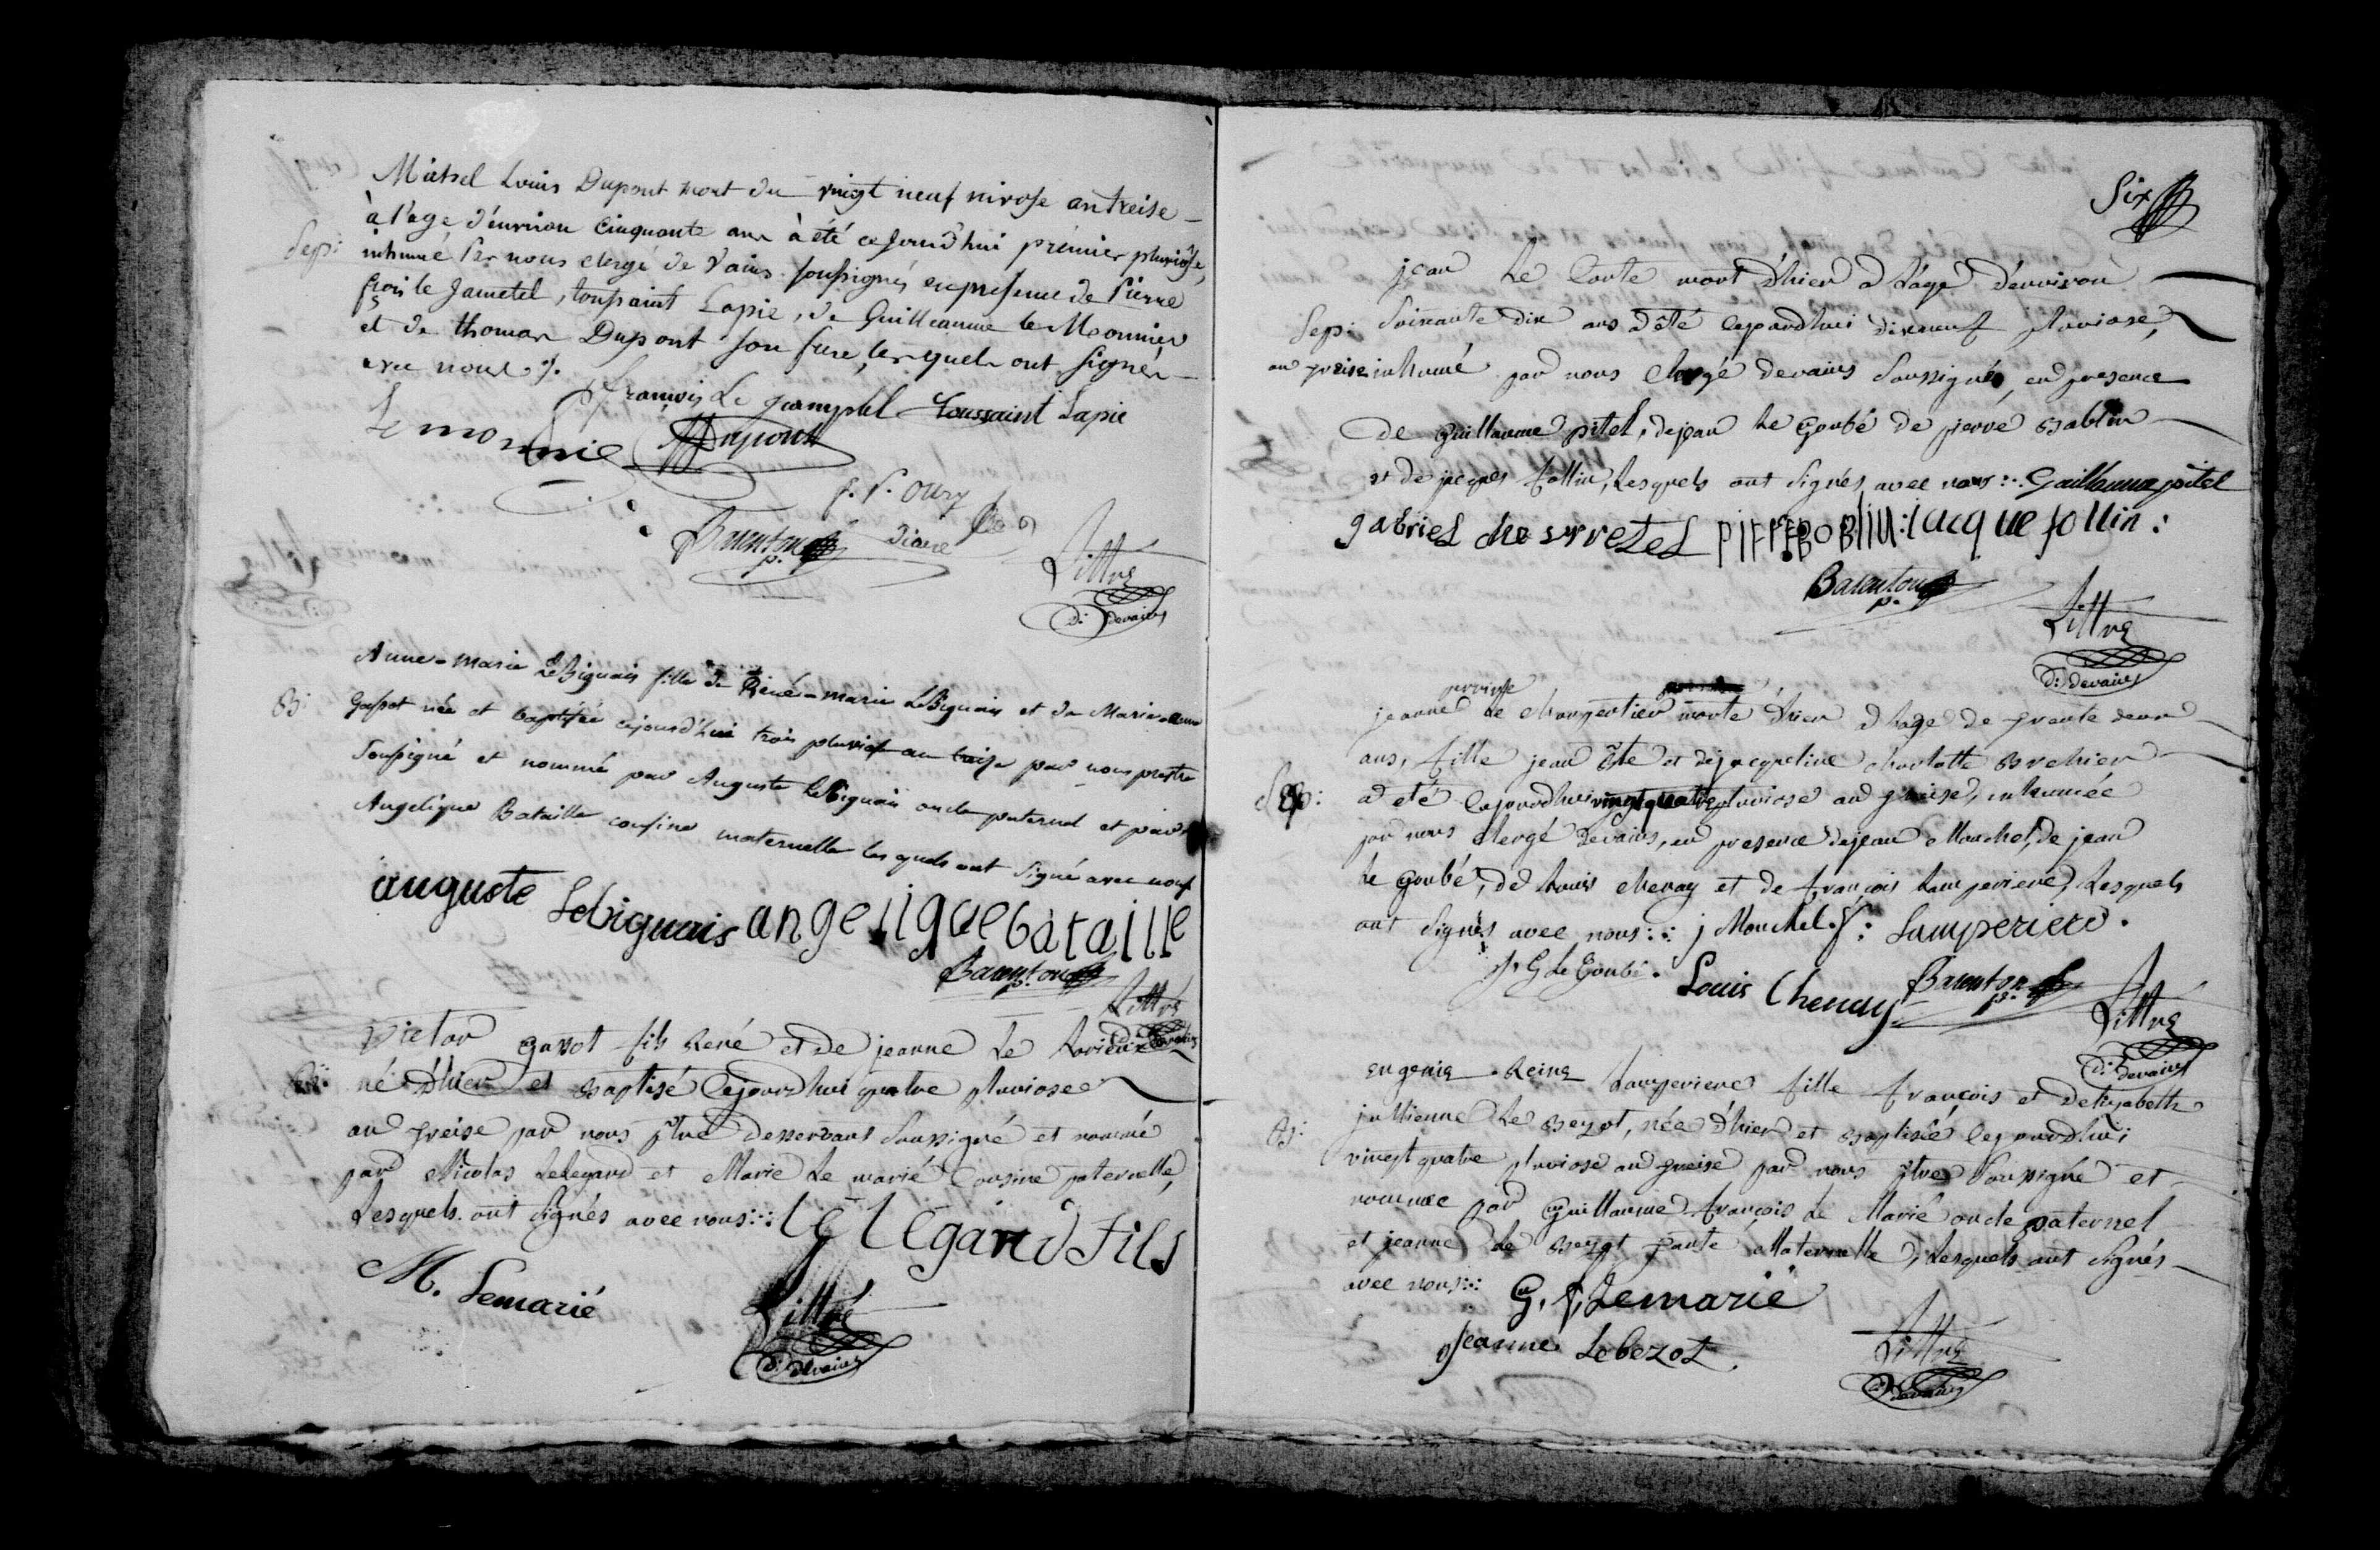 Michel Louis Dupont mort du vingt neuf nivose an treise
à l'age d'environ cinquante ans à été cejourd'hui prémier pluviose,
Sep:
inhumé Par nous clergé de Vains soussignés en presence de Pierre
frois le Jametel, toussaint Lapie, de Guilleaume le Meonnier
et de thomas Dupont son frere, lesquels ont signés
avec nous ./.
françois Le jeamptel toussaint Lapie
Le monnie Dupont
f. P. Oury
Barenton p. diacre
Littré
d: devains
Anne-marie LeBiguais fille de René-marie LeBiguais et de Marie-anne
B:
née et baptisée cejourd'hui trois pluviose an treize par nous prestre
soussigné et nommé par Auguste LeBiguais oncle paternel et par
Angelique Bataille cousine maternelle lesquels ont signé avec nous
auguste Lebiguais angelique bataille
Barenton p.
Littré
Victor gavot fils René et de jeanne Le
B:
né d'hier et Baptisé Cejourdhui quatre pluviose
an treise par nous ptre desservant soussigné et nommé
par Nicolas LeLegard et Marie Le marié Cousine paternelle,
Lesquels ont signés avec nous:: le legard fils
M. Lemarié
Littré
d: devains
Six
jean Le Conte mort d'hier a l'age d'environ
Sep:
soixante dix ans a été Cejourdhui dixneuf pluviose,
an treise inhumé par nous Clergé devains soussignés, en presence
de guillaume pitel, de jean Le goubé de pierre Boblin
et de jacques follin, Lesquels ont signés avec nous::. Guillaume pitel
gabriel PIERRE BOBLIN: iacque follin:
Barenton p.
Littré
d: devains
perrinne
jeanne Le charpentier morte d'hier a L'age de trente deux
ans, fille jean Bte et de jacqueline charlotte Brehier
Sep:
a eté Cejourdhui vingt quatre pluviose an treise, inhumée
par nous Clergé devains, en presence de jean Mouchel, de jean
Le goubé, de Louis chenay et de françois Lamperiere, Lesquels
ont signés avec nous::: j Mouchel. f: Lamperiere.
J, G Le Goubé. Louis Chenay Barenton p.
Littré
d: devains
eugenie Reine Lamperiere fille françois et delizabeth
B:
jullienne Le Bezot, née d'hier et Baptisée Cejourdhui
vingt quatre pluviose an treise par nous ptre soussigné et
nommée par Guillaume françois Le Marié oncle paternel
et jeanne Le Bezot tante Maternelle, Lesquels ont signés
avec nous::: G. f. Lemarié
Jeanne Lebezot.
Littré
d: devains